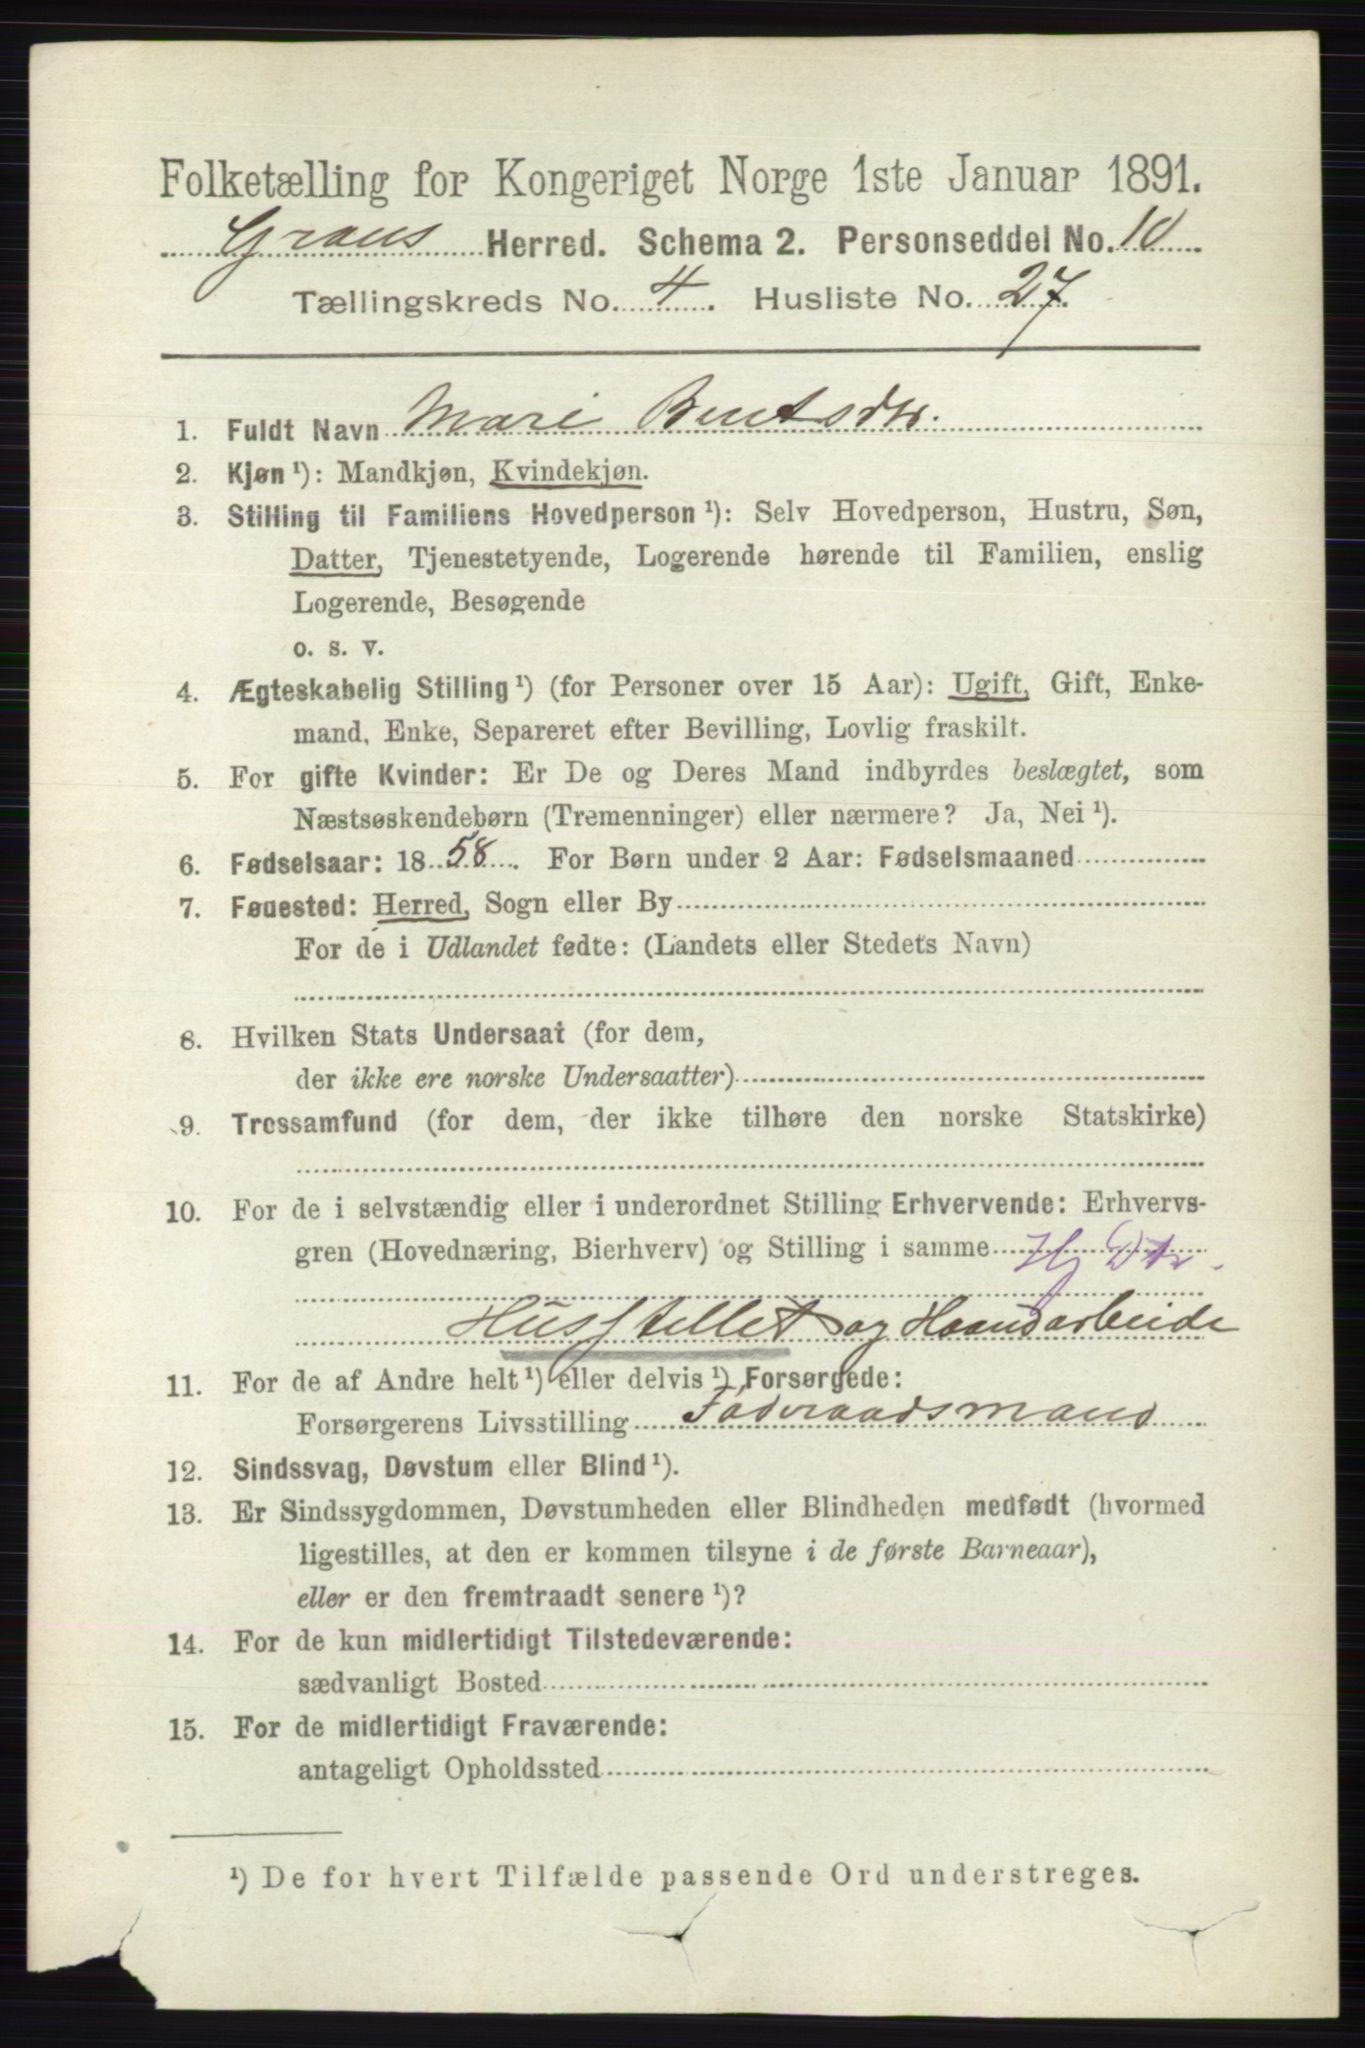 Folketælling for Kongeriget Norge 1ste Januar 1891.
Grans Herred. Schema 2. Personseddel No. 10
Tællingskreds No. 4. Husliste No. 27.
1. Fuldt Navn Mari Bentsdtr.
2. Kjøn ¹): Mandkjøn, Kvindekjøn.
3. Stilling til Familiens Hovedperson ¹): Selv Hovedperson, Hustru, Søn,
Datter, Tjenestetyende, Logerende hørende til Familien, enslig
Logerende, Besøgende
o. s. v.
4. Ægteskabelig Stilling ¹) (for Personer over 15 Aar): Ugift, Gift, Enke-
mand, Enke, Separeret efter Bevilling, Lovlig fraskilt.
5. For gifte Kvinder: Er De og Deres Mand indbyrdes beslægtet, som
Næstsøskendebørn (Tremenninger) eller nærmere? Ja, Nei ¹).
6. Fødselsaar: 1858. For Børn under 2 Aar: Fødselsmaaned
7. Føuested: Herred, Sogn eller By
For de i Udlandet fødte: (Landets eller Stedets Navn)
8. Hvilken Stats Undersaat (for dem,
der ikke ere norske Undersaatter)
9. Trossamfund (for dem, der ikke tilhøre den norske Statskirke)
10. For de i selvstændig eller i underordnet Stilling Erhvervende: Erhvervs-
gren (Hovednæring, Bierhverv) og Stilling i samme Hj Dtr.
Husstellet og Haandarbeide
11. For de af Andre helt ¹) eller delvis ¹) Forsørgede:
Forsørgerens Livsstilling Føderaadsmand
12. Sindssvag, Døvstum eller Blind ¹).
13. Er Sindssygdommen, Døvstumheden eller Blindheden medfødt (hvormed
ligestilles, at den er kommen tilsyne i de første Barneaar),
eller er den fremtraadt senere ¹)?
14. For de kun midlertidigt Tilstedeværende:
sædvanligt Bosted
15. For de midlertidigt Fraværende:
antageligt Opholdssted
¹) De for hvert Tilfælde passende Ord understreges.